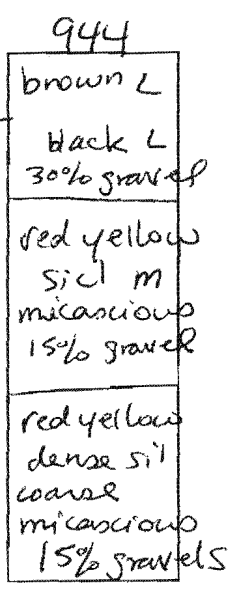 944
brown L
black L
30% gravel
red yellow
sicl m
micascious
15% gravel
red yellow
dense sil
coarse
micascious
15% gravels